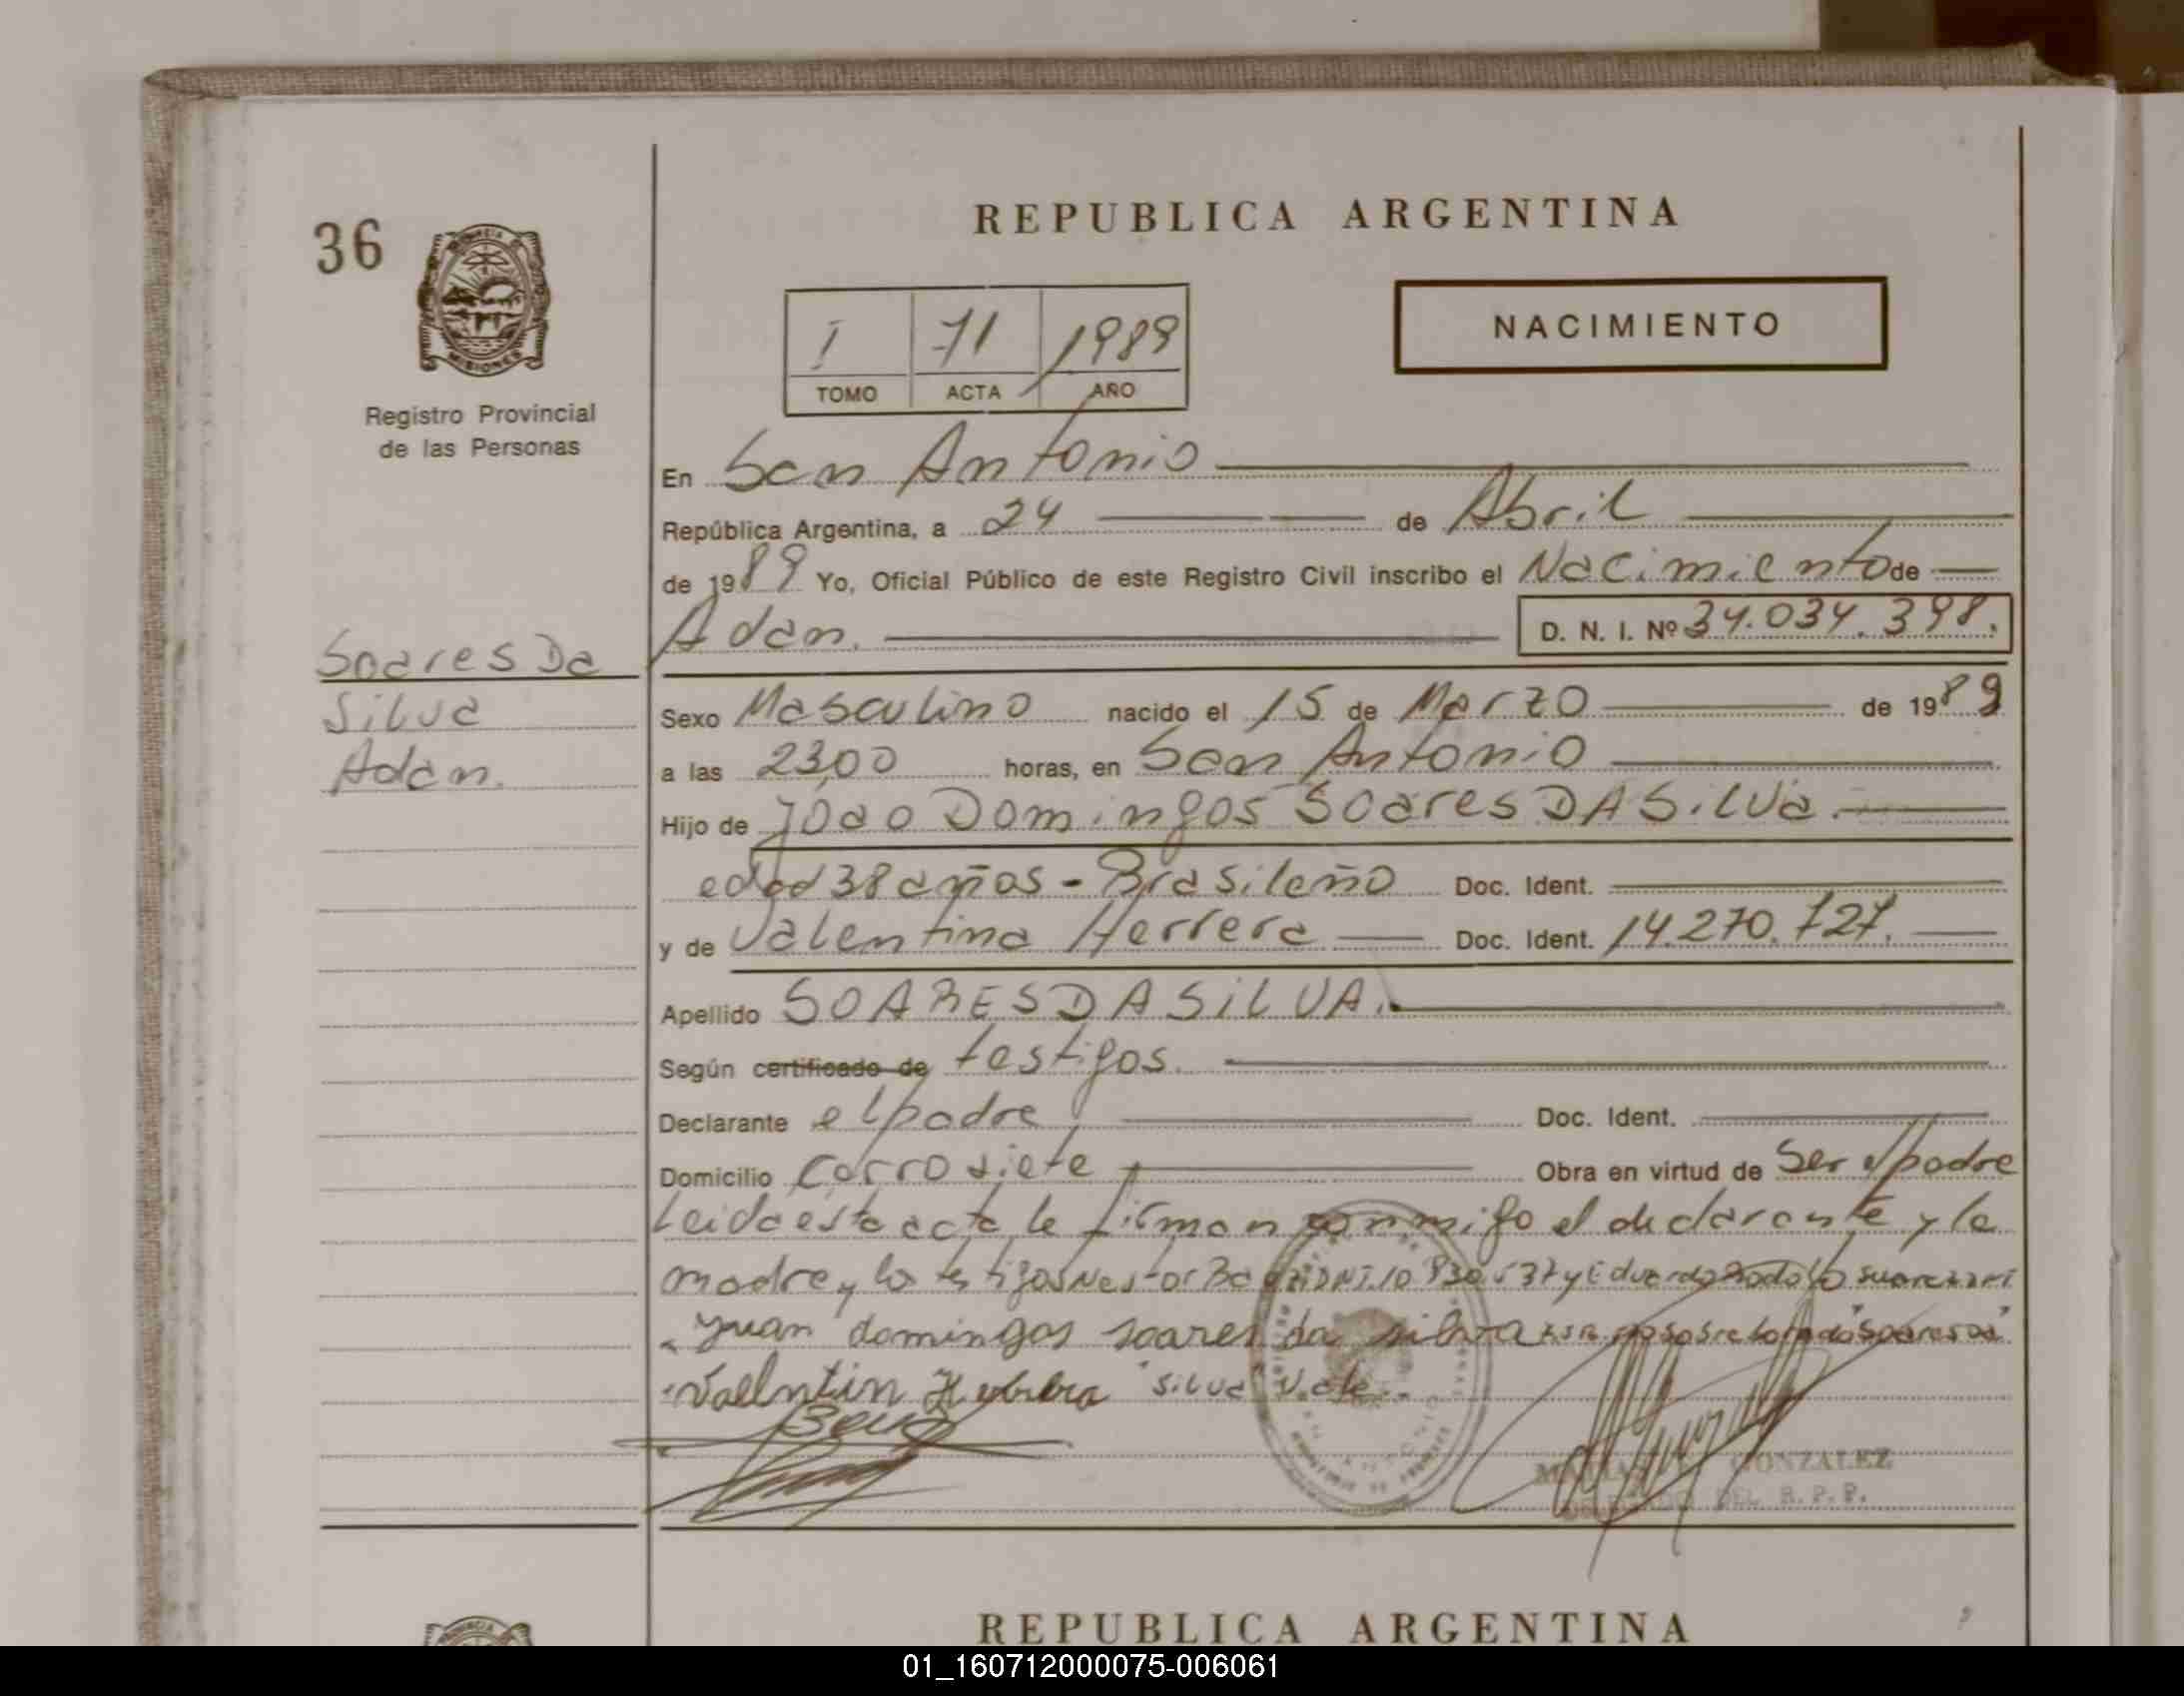 REPUBLICA ARGENTINA
36
NACIMIENTO
I 71 1989
TOMO ACTA AÑO
MISIONES
Registro Provincial
de las Personas
En San Antonio
República Argentina, a 24 de Abril
de 1989 Yo, Oficial Público de este Registro Civil inscribo el Nacimiento de
Adan. D. N. I. Nº 34.034.398.
Soares Da
Silva
Adan.
Sexo Masculino nacido el 15 de Marzo de 1989
a las 23,00 horas, en San Antonio
Hijo de Joao Domingos Soares DA Silva.
edad 38 años - Brasileño Doc. Ident.
y de Valentina Herrera Doc. Ident. 14.270.727.
Apellido SOARES DA SILVA.
Según certificado de testigos.
Declarante el padre Doc. Ident.
Domicilio Corro siete Obra en virtud de Ser el padre
Leida esta acta le firman conmigo el declarante y la
madre y los testigos Nestor DNI.10 y Eduardo Rodolfo
Juan domingos soares da silva "Soares Da"
"Silva" Vale.
GONZALEZ
DEL R.P.P.
REPUBLICA ARGENTINA
01_160712000075-006061